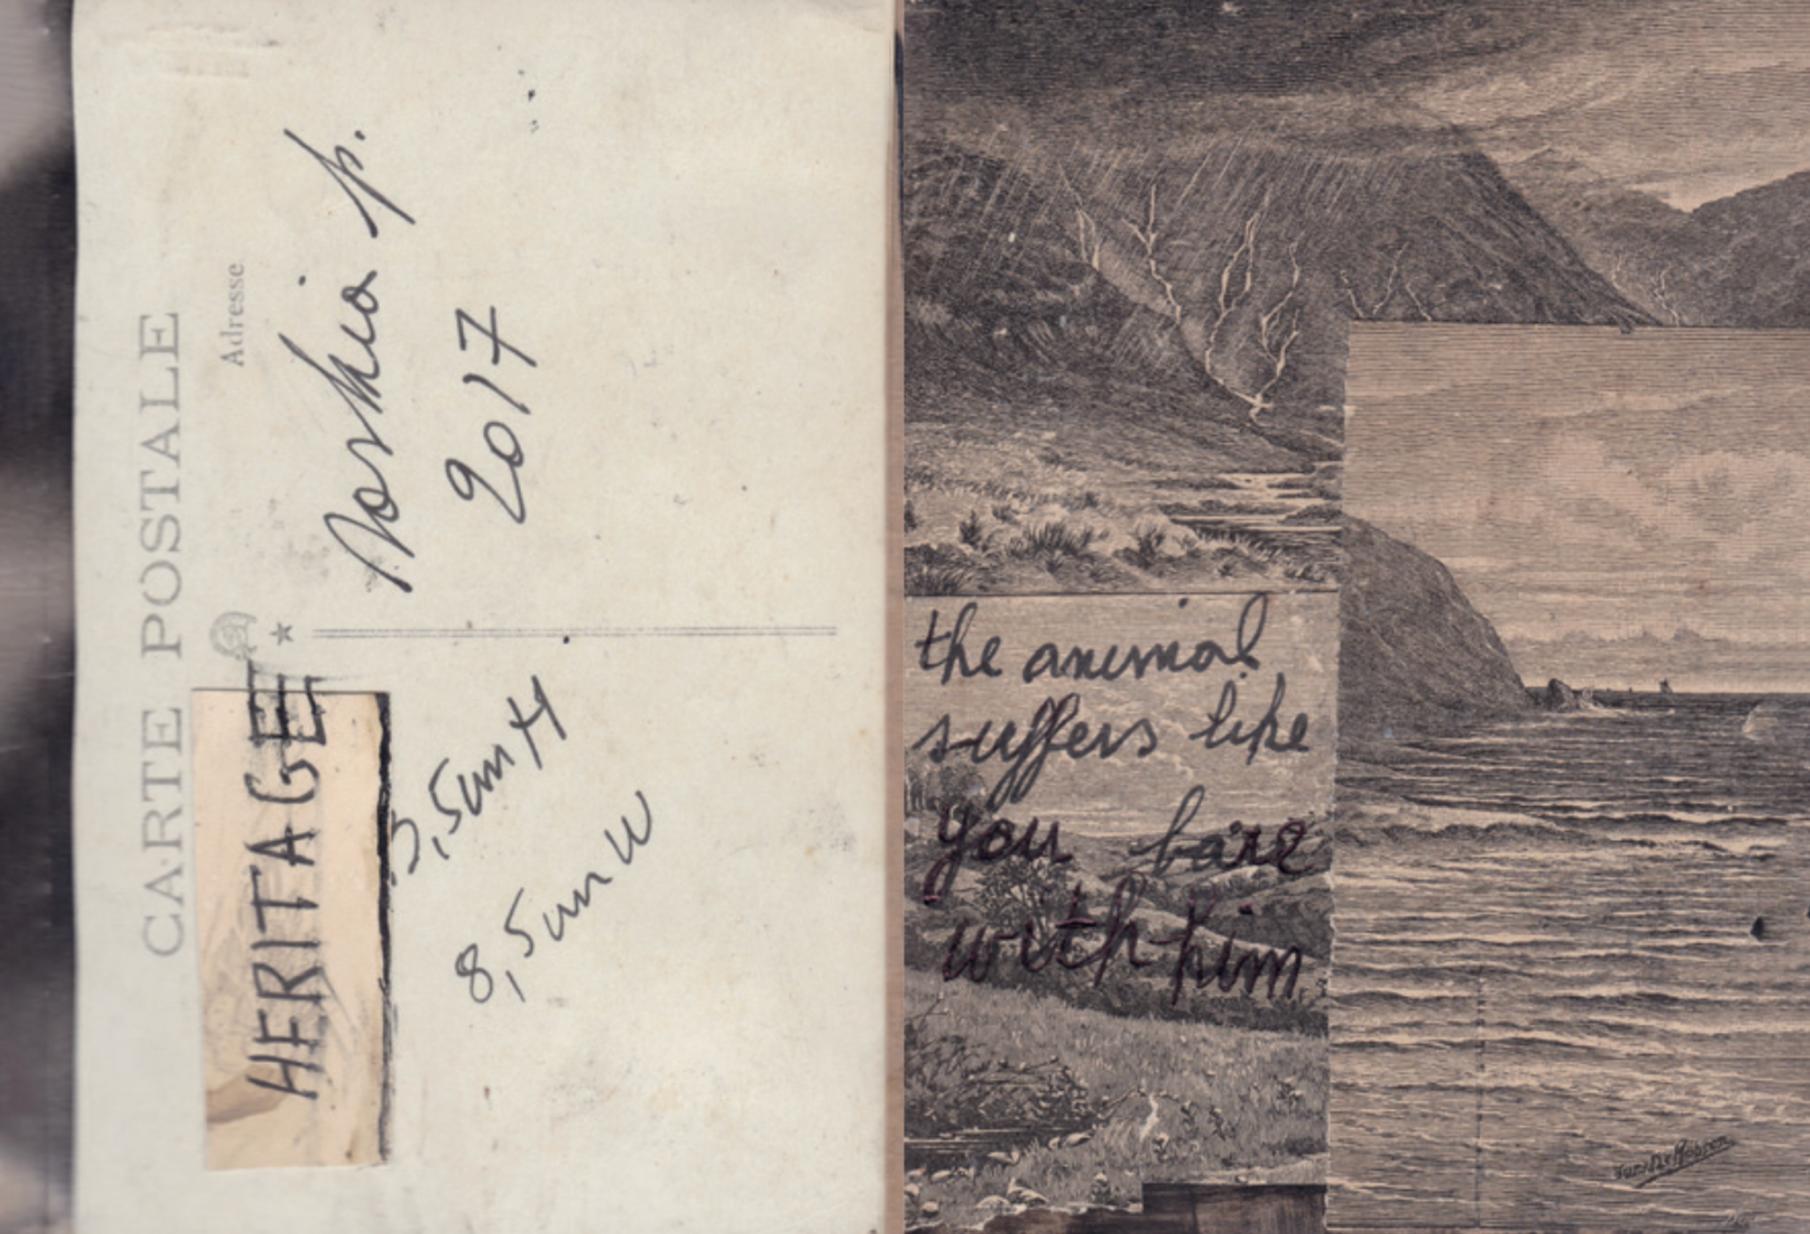 CARTE POSTALE
Adresse
p.
2017
HERITAGE
3,5cm H
8,5cm W
the animal
suffers like
you bare
with him